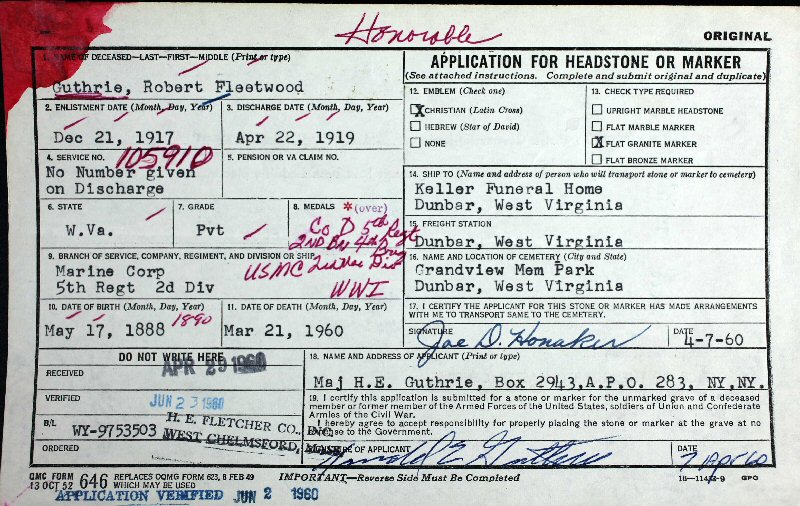 Honorable
ORIGINAL
1. NAME OF DECEASED—LAST—FIRST—MIDDLE (Print or type)
Guthrie, Robert Fleetwood
2. ENLISTMENT DATE (Month, Day, Year)
3. DISCHARGE DATE (Month, Day, Year)
Dec 21, 1917
Apr 22, 1919
4. SERVICE NO.
105910
5. PENSION OR VA CLAIM NO.
No Number given
on Discharge
6. STATE
7. GRADE
8. MEDALS * (over)
W.Va.
Pvt
Co D 5th Regt
2ND Bn 4th Brig
USMC 2nd Div
WWI
9. BRANCH OF SERVICE, COMPANY, REGIMENT, AND DIVISION OR SHIP
Marine Corp
5th Regt 2d Div
10. DATE OF BIRTH (Month, Day, Year)
11. DATE OF DEATH (Month, Day, Year)
May 17, 1888
1890
Mar 21, 1960
APPLICATION FOR HEADSTONE OR MARKER
(See attached instructions. Complete and submit original and duplicate)
12. EMBLEM (Check one)
X CHRISTIAN (Latin Cross)
HEBREW (Star of David)
NONE
13. CHECK TYPE REQUIRED
UPRIGHT MARBLE HEADSTONE
FLAT MARBLE MARKER
X FLAT GRANITE MARKER
FLAT BRONZE MARKER
14. SHIP TO (Name and address of person who will transport stone or marker to cemetery)
Keller Funeral Home
Dunbar, West Virginia
15. FREIGHT STATION
Dunbar, West Virginia
16. NAME AND LOCATION OF CEMETERY (City and State)
Grandview Mem Park
Dunbar, West Virginia
17. I CERTIFY THE APPLICANT FOR THIS STONE OR MARKER HAS MADE ARRANGEMENTS
WITH ME TO TRANSPORT SAME TO THE CEMETERY.
SIGNATURE
Joe D. Honaker
DATE
4-7-60
DO NOT WRITE HERE
RECEIVED
APR 29 1960
VERIFIED
JUN 23 1960
B/L
WY-9753503
H. E. FLETCHER CO., INC.
WEST CHELMSFORD, MASS.
ORDERED
18. NAME AND ADDRESS OF APPLICANT (Print or type)
Maj H.E. Guthrie, Box 2943,A.P.O. 283, NY,NY.
19. I certify this application is submitted for a stone or marker for the unmarked grave of a deceased
member or former member of the Armed Forces of the United States, soldiers of Union and Confederate
Armies of the Civil War.
I hereby agree to accept responsibility for properly placing the stone or marker at the grave at no
expense to the Government.
SIGNATURE OF APPLICANT
Harold E Guthrie
DATE
7 Apr 60
QMC FORM
13 OCT 52
646
REPLACES OQMG FORM 623, 8 FEB 49
WHICH MAY BE USED
IMPORTANT—Reverse Side Must Be Completed
GPO
APPLICATION VERIFIED JUN 2 1960